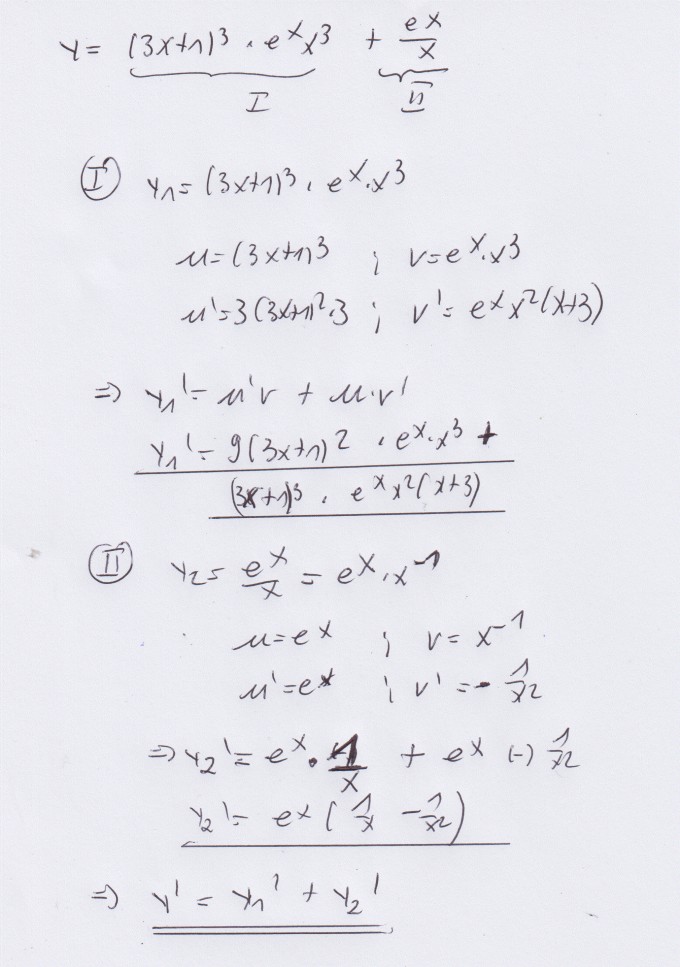 y = (3x+1)³ · eˣ x³ + eˣ/x
I II
I y₁ = (3x+1)³ · eˣ · x³
u = (3x+1)³ ; v = eˣ · x³
u' = 3(3x+1)² · 3 ; v' = eˣ x² (x+3)
⇒ y₁' = u'v + u·v'
y₁' = 9(3x+1)² · eˣ · x³ +
(3x+1)³ · eˣ x² (x+3)
II y₂ = eˣ/x = eˣ · x⁻¹
u = eˣ ; v = x⁻¹
u' = eˣ ; v' = - 1/x²
⇒ y₂' = eˣ · 1/x + eˣ (-) 1/x²
y₂' = eˣ (1/x - 1/x²)
⇒ y' = y₁' + y₂'